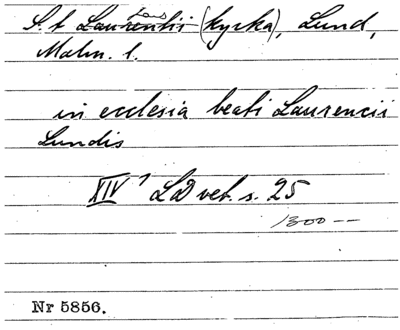 S.t Laurentii (kyrka), Lund,
Lars
Malm. l.
in ecclesia beati Laurencii
Lundis
XIV 1 LD vet. s. 25
1300 --
Nr 5856.